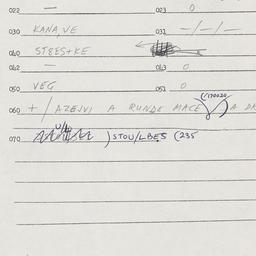 022 — 023 0
030 KANA,VE 031 -/-/-
040 ST8ES+KE
042 — 043 0
050 VEG 051 0
060 + / AZEJVI A RUNDE MACE A
070 )STOU/LBES (235